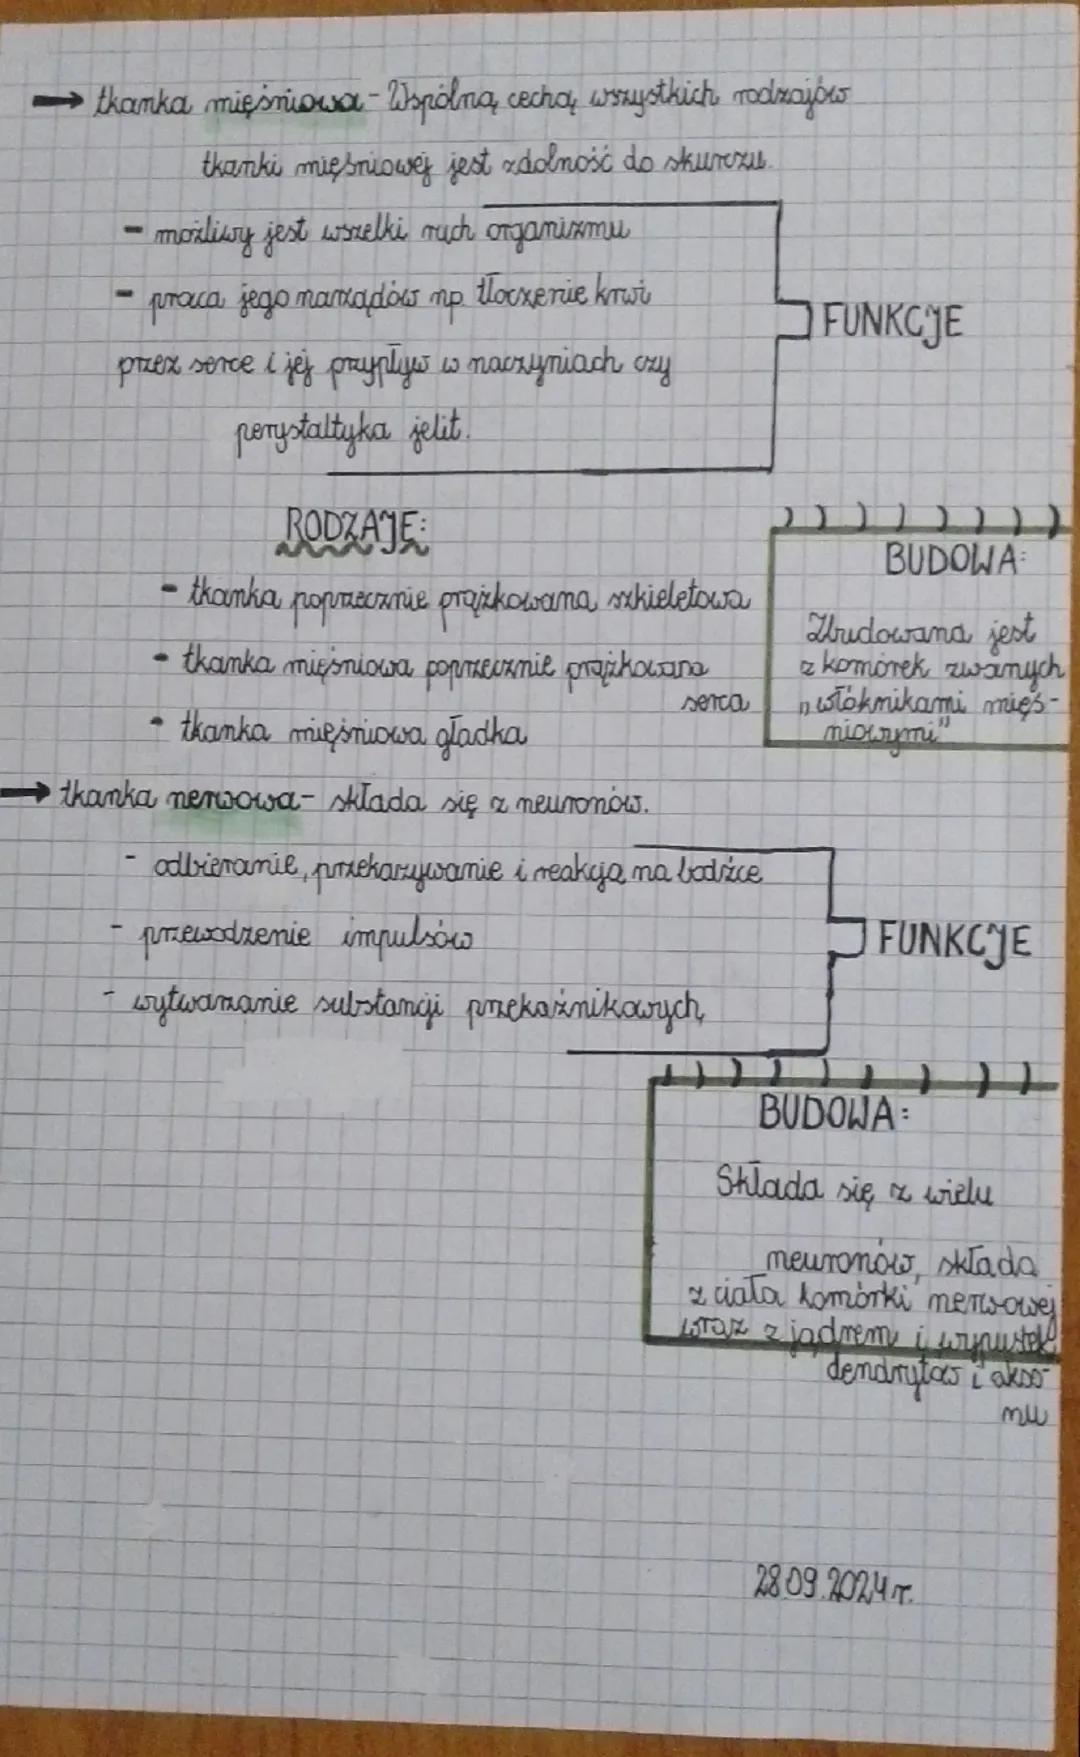 → tkanka mięśniowa - Wspólną cechą wszystkich rodzajów
tkanki mięśniowej jest zdolność do skurczu.
- możliwy jest wszelki ruch organizmu
- praca jego narządów np. tłoczenie krwi
przez serce i jej przypływ w naczyniach czy
perystaltyka jelit.
FUNKCJE
RODZAJE:
- tkanka poprzecznie prążkowana szkieletowa
- tkanka mięśniowa poprzecznie prążkowana
serca
- tkanka mięśniowa gładka
BUDOWA:
Zbudowana jest
z komórek zwanych
"włóknikami mięś-
niowymi"
→ tkanka nerwowa - składa się z neuronów.
- odbieranie, przekazywanie i reakcja na bodźce
- przewodzenie impulsów
- wytwarzanie substancji przekaźnikowych
FUNKCJE
BUDOWA:
Składa się z wielu
neuronów, składa
z ciała komórki nerwowej
wraz z jądrem i wypustek
dendrytów i akso-
nu
28.09.2024 r.